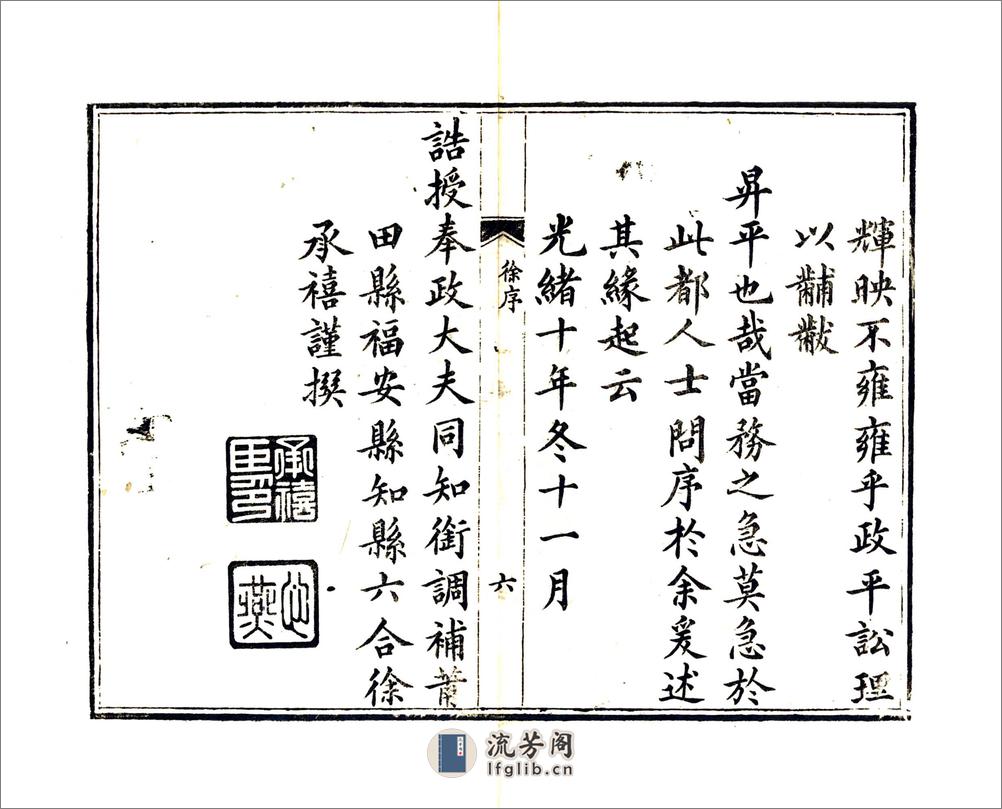 輝映不雍雍乎政平訟理
以黼黻
昇平也哉當務之急莫急於
此都人士問序於余爰述
其緣起云
光緒十年冬十一月
徐序
六
誥授奉政大夫同知銜調補莆
田縣福安縣知縣六合徐
承禧謹撰
承禧
燕
流芳阁
lfglib.cn